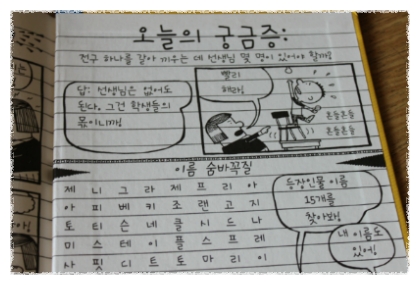 오늘의 궁금증:
전구 하나를 갈아 끼우는 데 선생님 몇 명이 있어야 할까?
답: 선생님은 없어도
된다. 그건 학생들의
몫이니까!
빨리
해라!
흔들흔들
흔들흔들
이름 숨바꼭질
제 니 그 라 제 프 리 아
아 피 베 키 조 랜 고 지
토 티 슨 네 클 시 드 나
미 스 테 이 플 스 프 레
사 핑 디 트 토 마 리 이
등장인물 이름
15개를
찾아봐!
내 이름도
있어!